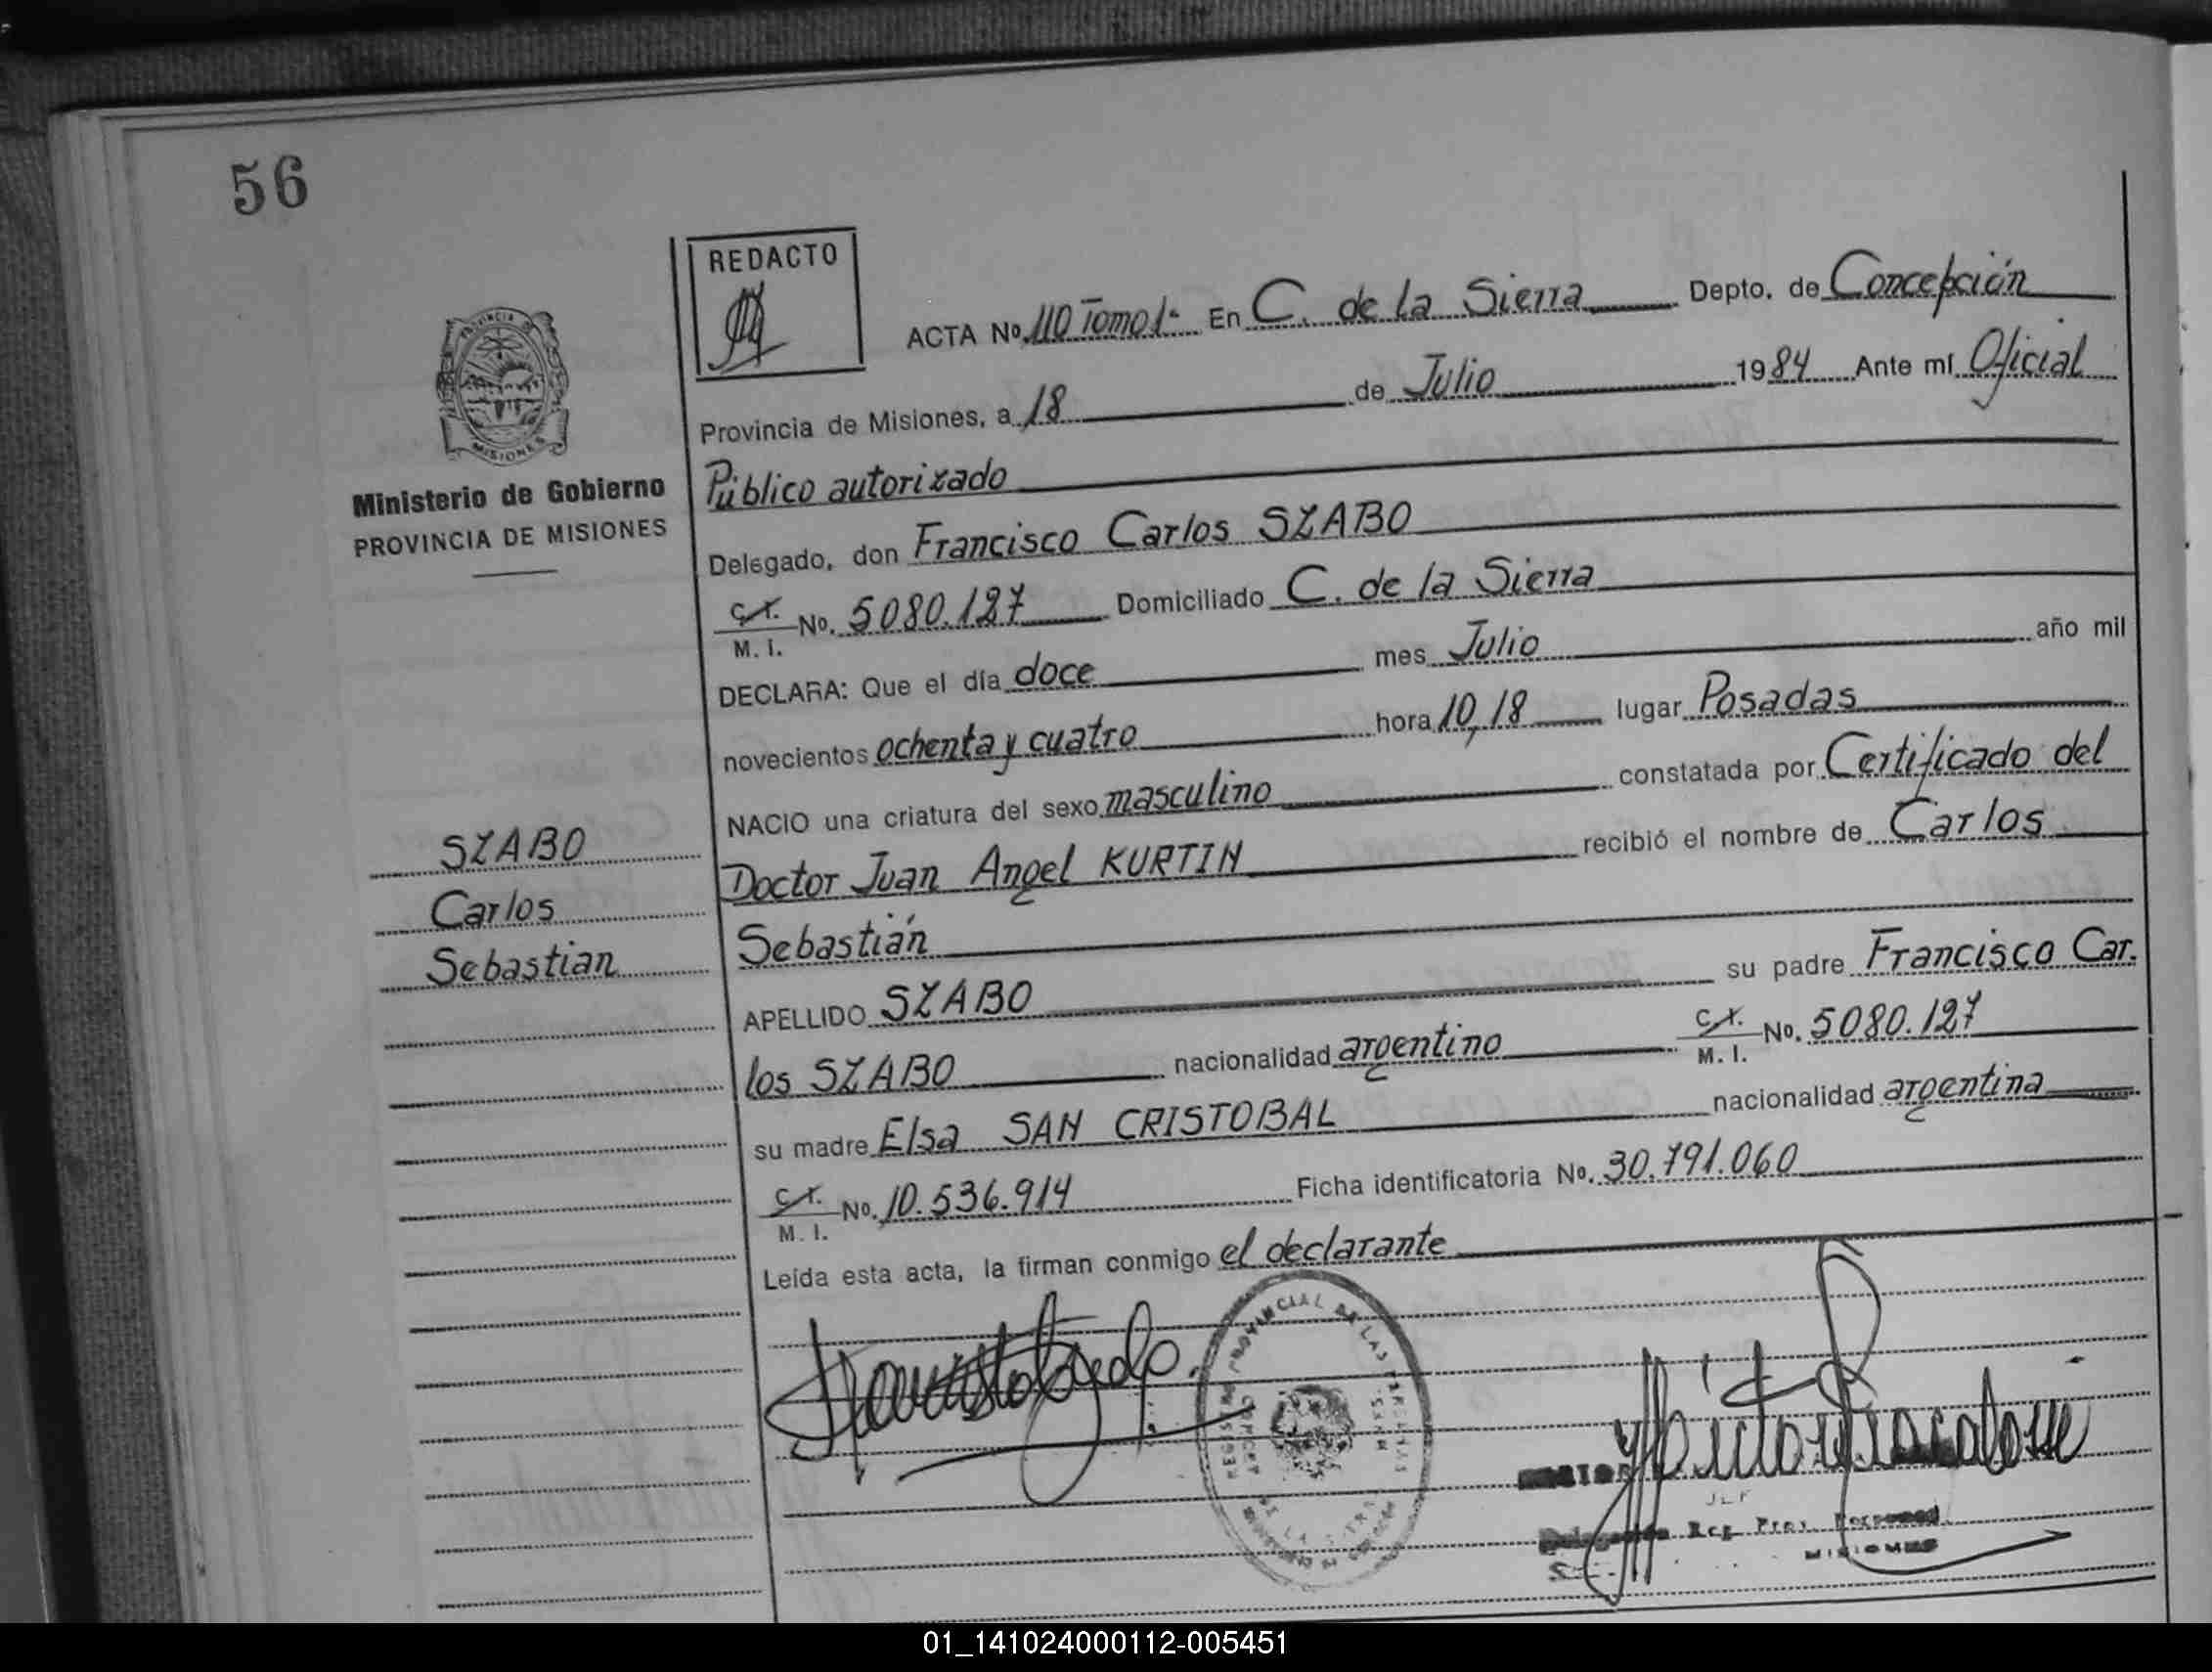 56
REDACTO
ACTA No. 110 Tomo 1- En C. de la Sierra Depto. de Concepción
Provincia de Misiones, a 18 de Julio 1984 Ante mí Oficial
Público autorizado
PROVINCIA DE
MISIONES
Ministerio de Gobierno
PROVINCIA DE MISIONES
Delegado, don Francisco Carlos SZABO
C.I. M. I. No. 5080.127 Domiciliado C. de la Sierra
DECLARA: Que el día doce mes Julio año mil
novecientos ochenta y cuatro hora 10,18 lugar Posadas
NACIO una criatura del sexo masculino constatada por Certificado del
Doctor Juan Angel KURTIN recibió el nombre de Carlos
Sebastián
SZABO
Carlos
Sebastian
APELLIDO SZABO su padre Francisco Car.
los SZABO nacionalidad argentino C.I. M. I. No. 5080.127
su madre Elsa SAN CRISTOBAL nacionalidad argentina
C.I. M. I. No. 10.536.914 Ficha identificatoria No. 30.791.060
Leída esta acta, la firman conmigo el declarante
PROVINCIAL DE LAS PERSONAS
Reg. Prov. Personas
MISIONES
01_141024000112-005451